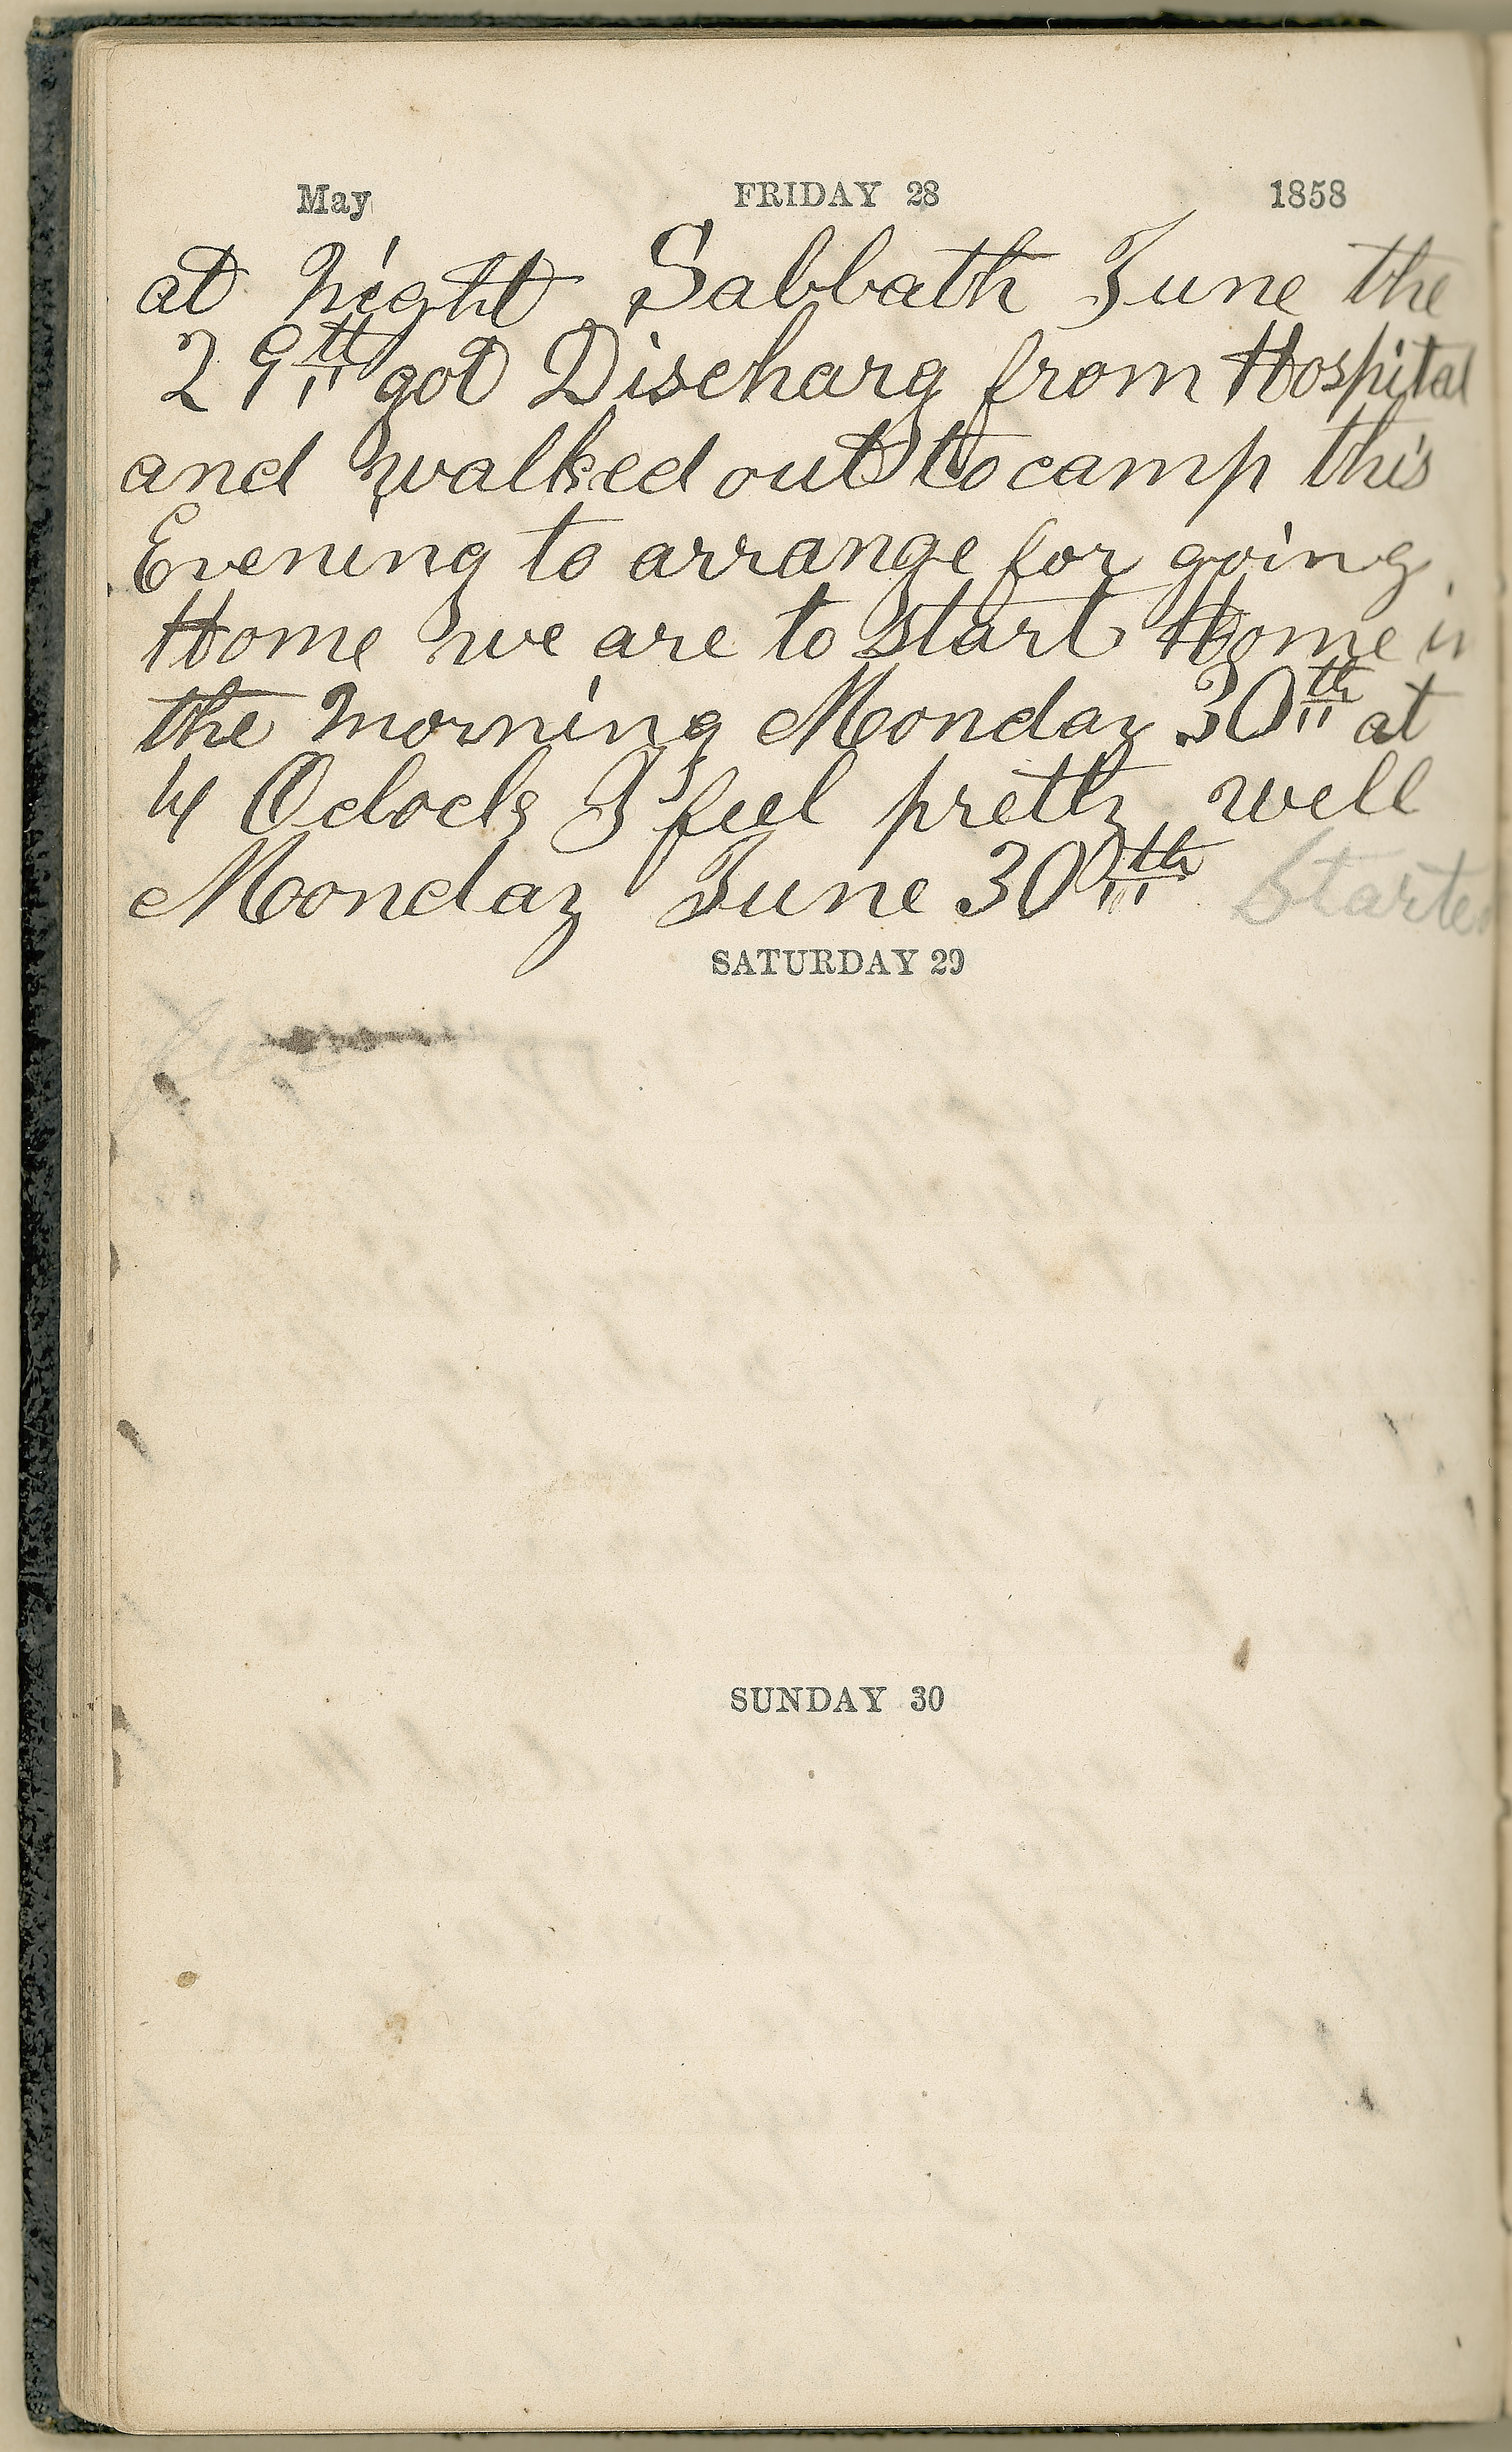 May FRIDAY 28 1858
at Night Sabbath June the
29th got Discharg from Hospital
and walked out to camp this
Evening to arrange for going
Home we are to start Home in
the morning Monday 30th at
4 Oclock I feel pretty well
Monday June 30th Started
SATURDAY 29
SUNDAY 30